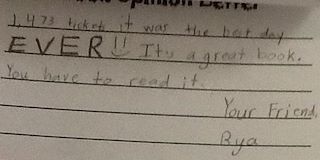 Opinion Letter
1,473 tickets it was the best day
EVER!! Its a great book.
You have to read it.
Your Friend,
Rya